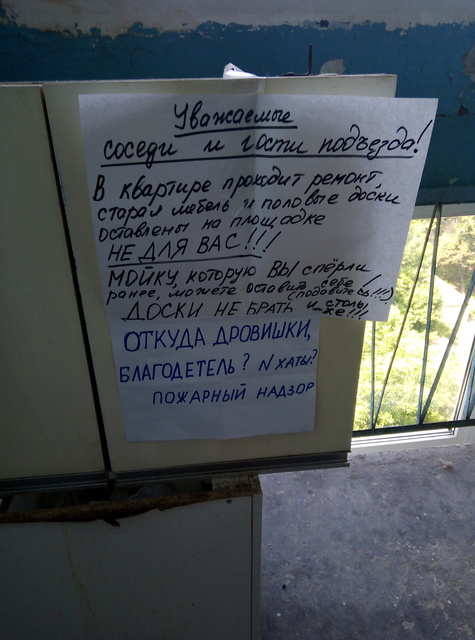 Уважаемые
соседи и гости подъезда!
В квартире проходит ремонт,
старая мебель и половые доски
оставлены на площадке
НЕ ДЛЯ ВАС!!!
МОЙКУ, которую ВЫ спёрли
ранее, можете оставить себе!
(подавитесь!!!)
ДОСКИ НЕ БРАТЬ и столы
тоже!!!
ОТКУДА ДРОВИШКИ,
БЛАГОДЕТЕЛЬ? N ХАТЫ?
ПОЖАРНЫЙ НАДЗОР